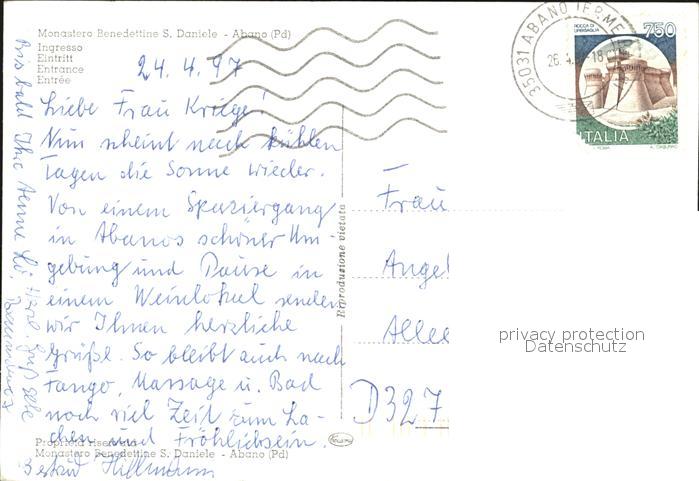 Monastero Benedettine S. Daniele - Abano (Pd)
Ingresso
Eintritt
Entrance
Entrée
24. 4. 97
Liebe Frau Krüger!
Nun scheint nach kühlen
Tagen die Sonne wieder.
Von einem Spaziergang
in Abanos schöner Um-
gebung und Pause in
einem Weinlokal senden
wir Ihnen herzliche
Grüße. So bleibt auch nach
Fango, Massage u. Bad
noch viel Zeit zum La-
chen und Fröhlichsein.
Hillmann
Bis bald Ihre
Proprietà riservata
Monastero Benedettine S. Daniele - Abano (Pd)
Riproduzione vietata
35031 ABANO TERME
26. 4.
18
ROCCA DI
URBISAGLIA
750
ITALIA
Frau
Angel
Allee
D 327
privacy protection
Datenschutz